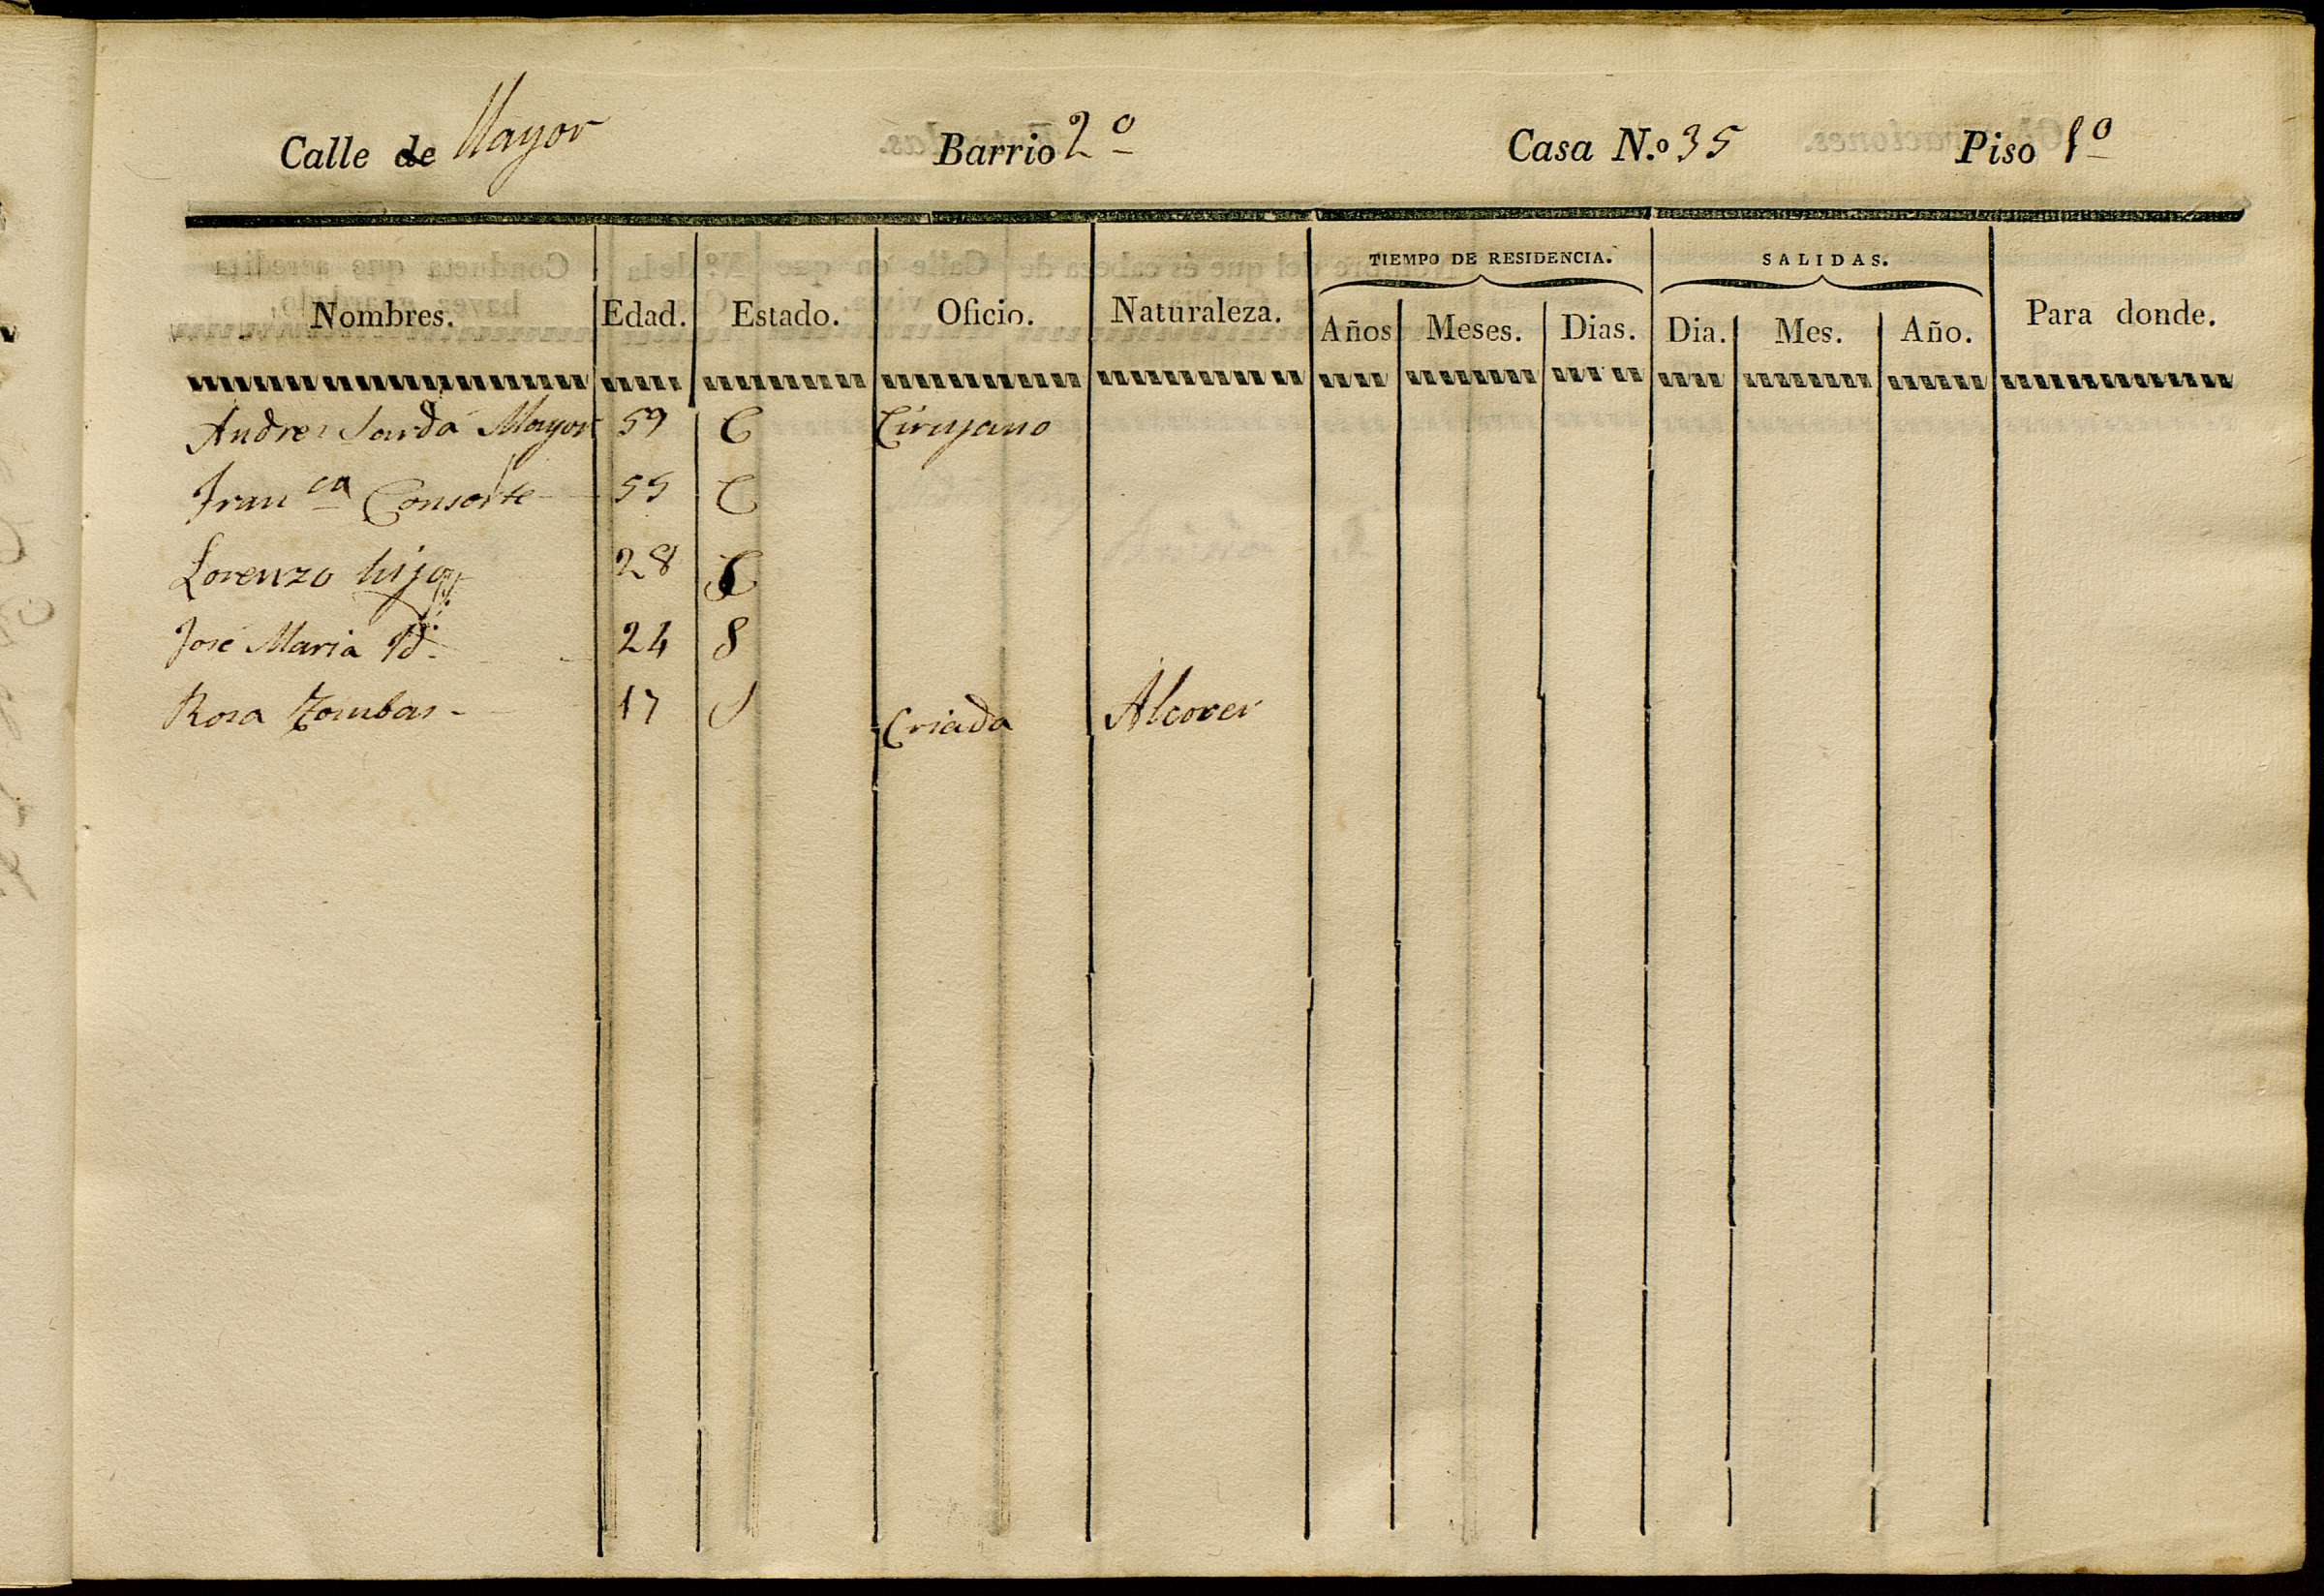 Calle de Mayor Barrio 2º Casa N.º 35 Piso 1º
TIEMPO DE RESIDENCIA. SALIDAS.
Nombres. Edad. Estado. Oficio. Naturaleza. Años Meses. Dias. Dia. Mes. Año. Para donde.
Andres Sardá Mayor 59 C Cirujano
Franca Consorte 55 C
Lorenzo hijo 28 C
José Maria Yd. 24 S
Rosa Tombas 17 S Criada Alcover